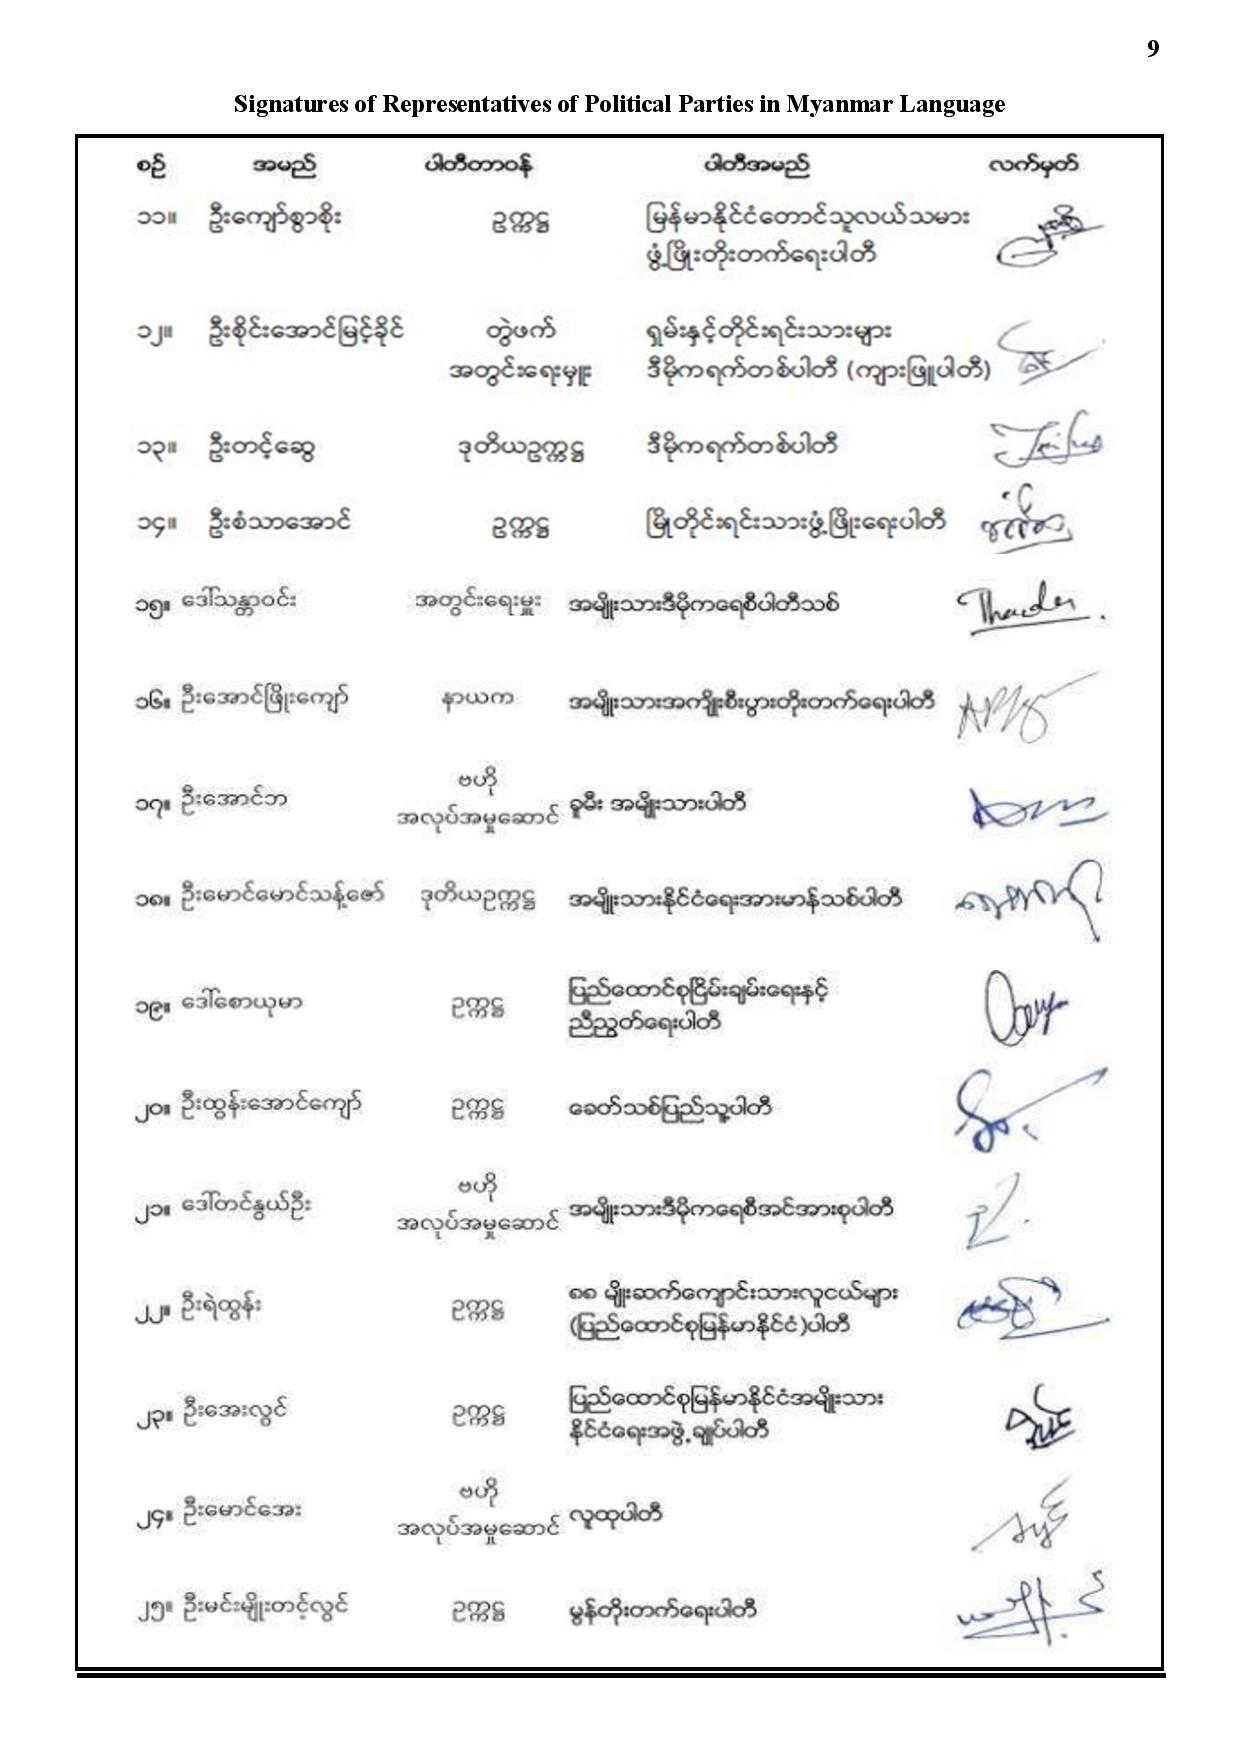 9
Signatures of Representatives of Political Parties in Myanmar Language
စဉ် အမည် ပါတီတာဝန် ပါတီအမည် လက်မှတ်
၁၁။ ဦးကျော်စွာစိုး ဥက္ကဋ္ဌ မြန်မာနိုင်ငံတောင်သူလယ်သမား
ဖွံ့ဖြိုးတိုးတက်ရေးပါတီ
၁၂။ ဦးစိုင်းအောင်မြင့်ခိုင် တွဲဖက် ရှမ်းနှင့်တိုင်းရင်းသားများ
အတွင်းရေးမှူး ဒီမိုကရက်တစ်ပါတီ (ကျားဖြူပါတီ)
၁၃။ ဦးတင့်ဆွေ ဒုတိယဥက္ကဋ္ဌ ဒီမိုကရက်တစ်ပါတီ
၁၄။ ဦးစံသာအောင် ဥက္ကဋ္ဌ မြိုတိုင်းရင်းသားဖွံ့ဖြိုးရေးပါတီ
၁၅။ ဒေါ်သန္တာဝင်း အတွင်းရေးမှူး အမျိုးသားဒီမိုကရေစီပါတီသစ်
၁၆။ ဦးအောင်ဖြိုးကျော် နာယက အမျိုးသားအကျိုးစီးပွားတိုးတက်ရေးပါတီ
၁၇။ ဦးအောင်ဘ ဗဟို
အလုပ်အမှုဆောင် ခူမီး အမျိုးသားပါတီ
၁၈။ ဦးမောင်မောင်သန့်ဇော် ဒုတိယဥက္ကဋ္ဌ အမျိုးသားနိုင်ငံရေးအားမာန်သစ်ပါတီ
၁၉။ ဒေါ်စောယုမာ ဥက္ကဋ္ဌ ပြည်ထောင်စုငြိမ်းချမ်းရေးနှင့်
ညီညွတ်ရေးပါတီ
၂၀။ ဦးထွန်းအောင်ကျော် ဥက္ကဋ္ဌ ခေတ်သစ်ပြည်သူ့ပါတီ
၂၁။ ဒေါ်တင်နွယ်ဦး ဗဟို
အလုပ်အမှုဆောင် အမျိုးသားဒီမိုကရေစီအင်အားစုပါတီ
၂၂။ ဦးရဲထွန်း ဥက္ကဋ္ဌ ၈၈ မျိုးဆက်ကျောင်းသားလူငယ်များ
(ပြည်ထောင်စုမြန်မာနိုင်ငံ)ပါတီ
၂၃။ ဦးအေးလွင် ဥက္ကဋ္ဌ ပြည်ထောင်စုမြန်မာနိုင်ငံအမျိုးသား
နိုင်ငံရေးအဖွဲ့ချုပ်ပါတီ
၂၄။ ဦးမောင်အေး ဗဟို
အလုပ်အမှုဆောင် လူထုပါတီ
၂၅။ ဦးမင်းမျိုးတင့်လွင် ဥက္ကဋ္ဌ မွန်တိုးတက်ရေးပါတီ